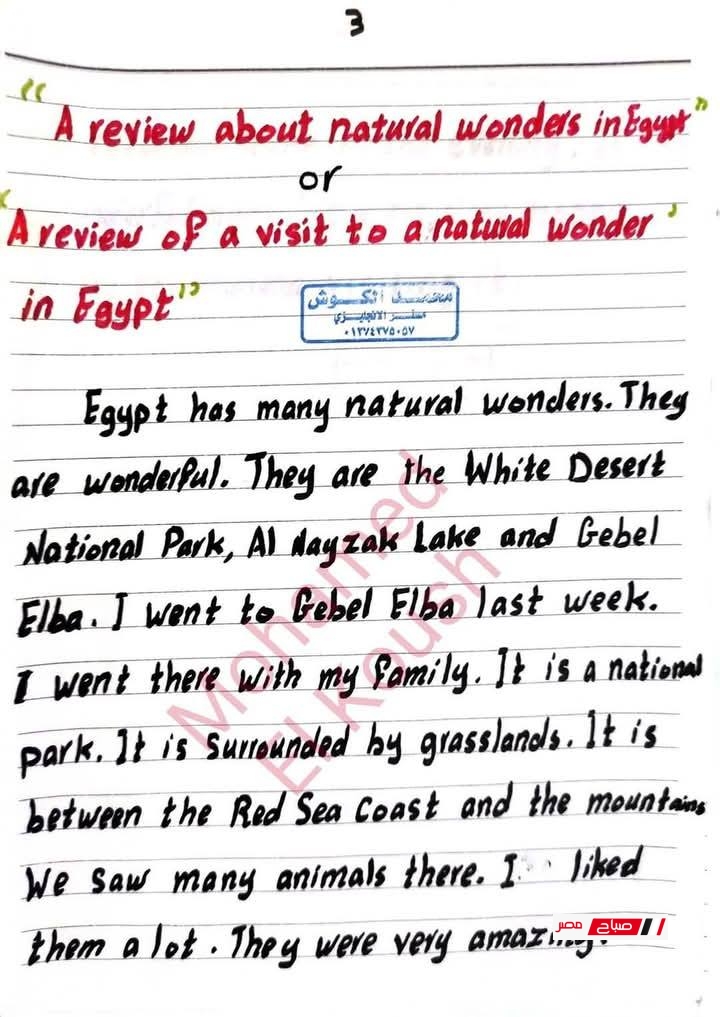 3
"A review about natural wonders in Egypt"
or
"A review of a visit to a natural wonder
in Egypt"
محمد الكوش
مستر الانجليزي
٠١٢٧٤٢٧٥٠٥٧
Egypt has many natural wonders. They
are wonderful. They are the White Desert
National Park, Al Nayzak Lake and Gebel
Elba. I went to Gebel Elba last week.
I went there with my family. It is a national
park. It is surrounded by grasslands. It is
between the Red Sea Coast and the mountains
We saw many animals there. I liked
them a lot. They were very amazing.
صباح مصر
Mohamed
El Koush